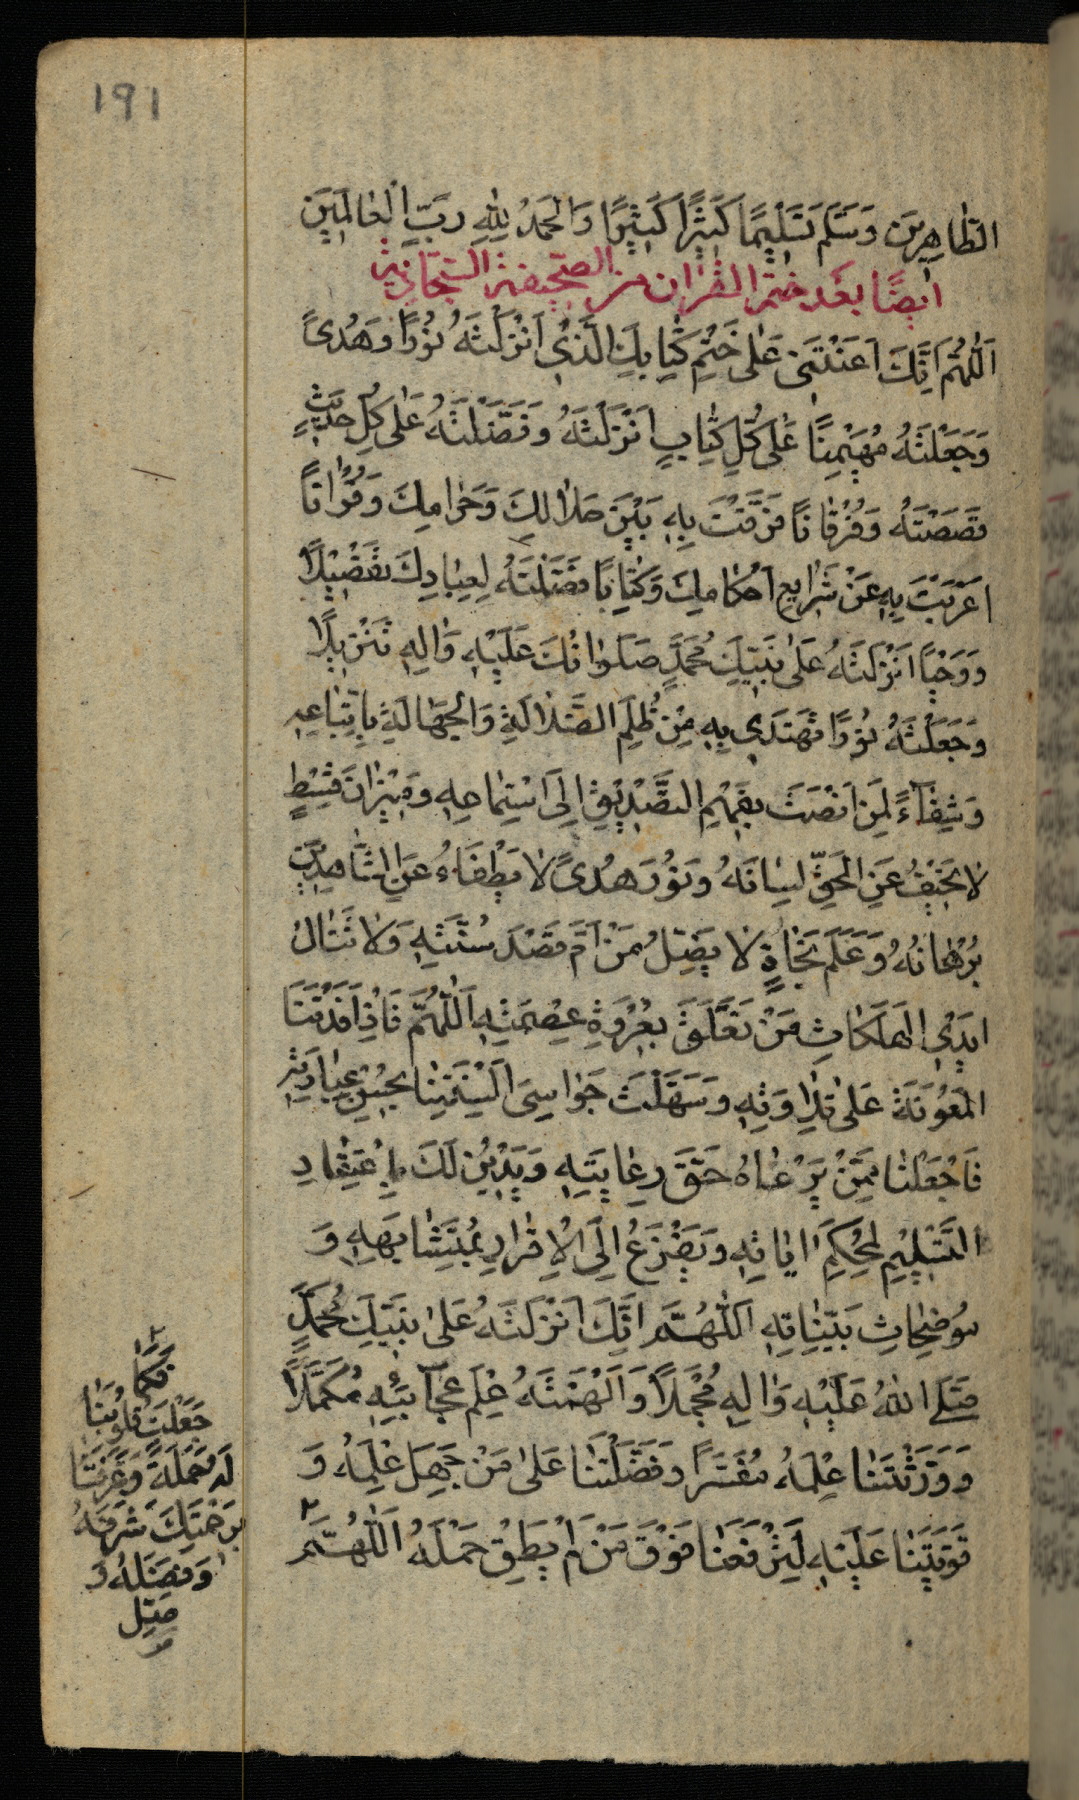 ١٩١
الطاهِرينَ وَسَلَّمَ تَسْلِيمًا كَثِيرًا كَثِيرًا وَالحَمْدُ لِلّٰهِ رَبِّ الْعالَمِينَ
ايضًا بعَد ختم القران من الصحيفة السجادية
اَللّٰهُمَّ اِنَّكَ اَعَنْتَنى عَلٰى خَتْمِ كِتابِكَ الَّذى اَنْزَلْتَهُ نُورًا وَهُدىً
وَجَعَلْتَهُ مُهَيْمِنًا عَلٰى كُلِّ كِتابٍ اَنْزَلْتَهُ وَفَضَّلْتَهُ عَلٰى كُلِّ حَديثٍ
قَصَصْتَهُ وَفُرْقانًا فَرَقْتَ بِهِ بَيْنَ حَلالِكَ وَحَرامِكَ وَقُرْانًا
اَعْرَبْتَ بِهِ عَنْ شَرايِعِ اَحْكامِكَ وَكِتابًا فَصَّلْتَهُ لِعِبادِكَ تَفْصِيلًا
وَوَحْيًا اَنْزَلْتَهُ عَلٰى نَبِيِّكَ مُحَمَّدٍ صَلَواتُكَ عَلَيْهِ وَالِهِ تَنْزِيلًا
وَجَعَلْتَهُ نُورًا نَهْتَدى بِهِ مِنْ ظُلَمِ الضَّلالَةِ وَالجَهالَةِ بِاِتِّباعِهِ
وَشِفآءً لِمَنْ اَنْصَتَ بِفَهْمِ التَّصْدِيقِ اِلَى اسْتِماعِهِ وَمِيزانَ قِسْطٍ
لا يَحيفُ عَنِ الحَقِّ لِسانُهُ وَنُورَ هُدىً لا يَطْفَاُ عَنِ الشّاهِدينَ
بُرْهانُهُ وَعَلَمَ نَجاةٍ لا يَضِلُّ مَنْ اَمَّ قَصْدَ سُنَّتِهِ وَلا تَنالُ
اَيْدِى الهَلَكاتِ مَنْ تَعَلَّقَ بِعُرْوَةِ عِصْمَتِهِ اَللّٰهُمَّ فَاِذْ اَفَدْتَنَا
المَعُونَةَ عَلٰى تِلاوَتِهِ وَسَهَّلْتَ جَواسِىَ اَلْسِنَتِنا بِحُسْنِ عِبارَتِهِ
فَاجْعَلْنا مِمَّنْ يَرْعاهُ حَقَّ رِعايَتِهِ وَيَدينُ لَكَ بِاِعْتِقادِ
التَّسْلِيمِ لِمُحْكَمِ اياتِهِ وَيَفْزَعُ اِلَى الْاِقْرارِ بِمُتَشابِهِهِ وَ
مُوضِحاتِ بَيِّناتِهِ اَللّٰهُمَّ اِنَّكَ اَنْزَلْتَهُ عَلٰى نَبِيِّكَ مُحَمَّدٍ
صَلَّى اللهُ عَلَيْهِ وَالِهِ مُجْمَلًا وَاَلْهَمْتَهُ عِلْمَ عَجآئِبِهِ مُكَمَّلًا
وَوَرَّثْتَنا عِلْمَهُ مُفَسَّرًا وَفَضَّلْتَنا عَلٰى مَنْ جَهِلَ عِلْمَهُ وَ
قَوَّيْتَنا عَلَيْهِ لِتَرْفَعَنا فَوْقَ مَنْ لَمْ يُطِقْ حَمْلَهُ اَللّٰهُمَّ ٢
٢
فَكَما
جَعَلْتَ قُلُوبَنا
لَهُ حَمَلَةً وَعَرَّفْتَنا
بِرَحْمَتِكَ شَرَفَهُ
وَفَضْلَهُ فَ
صَلِّ